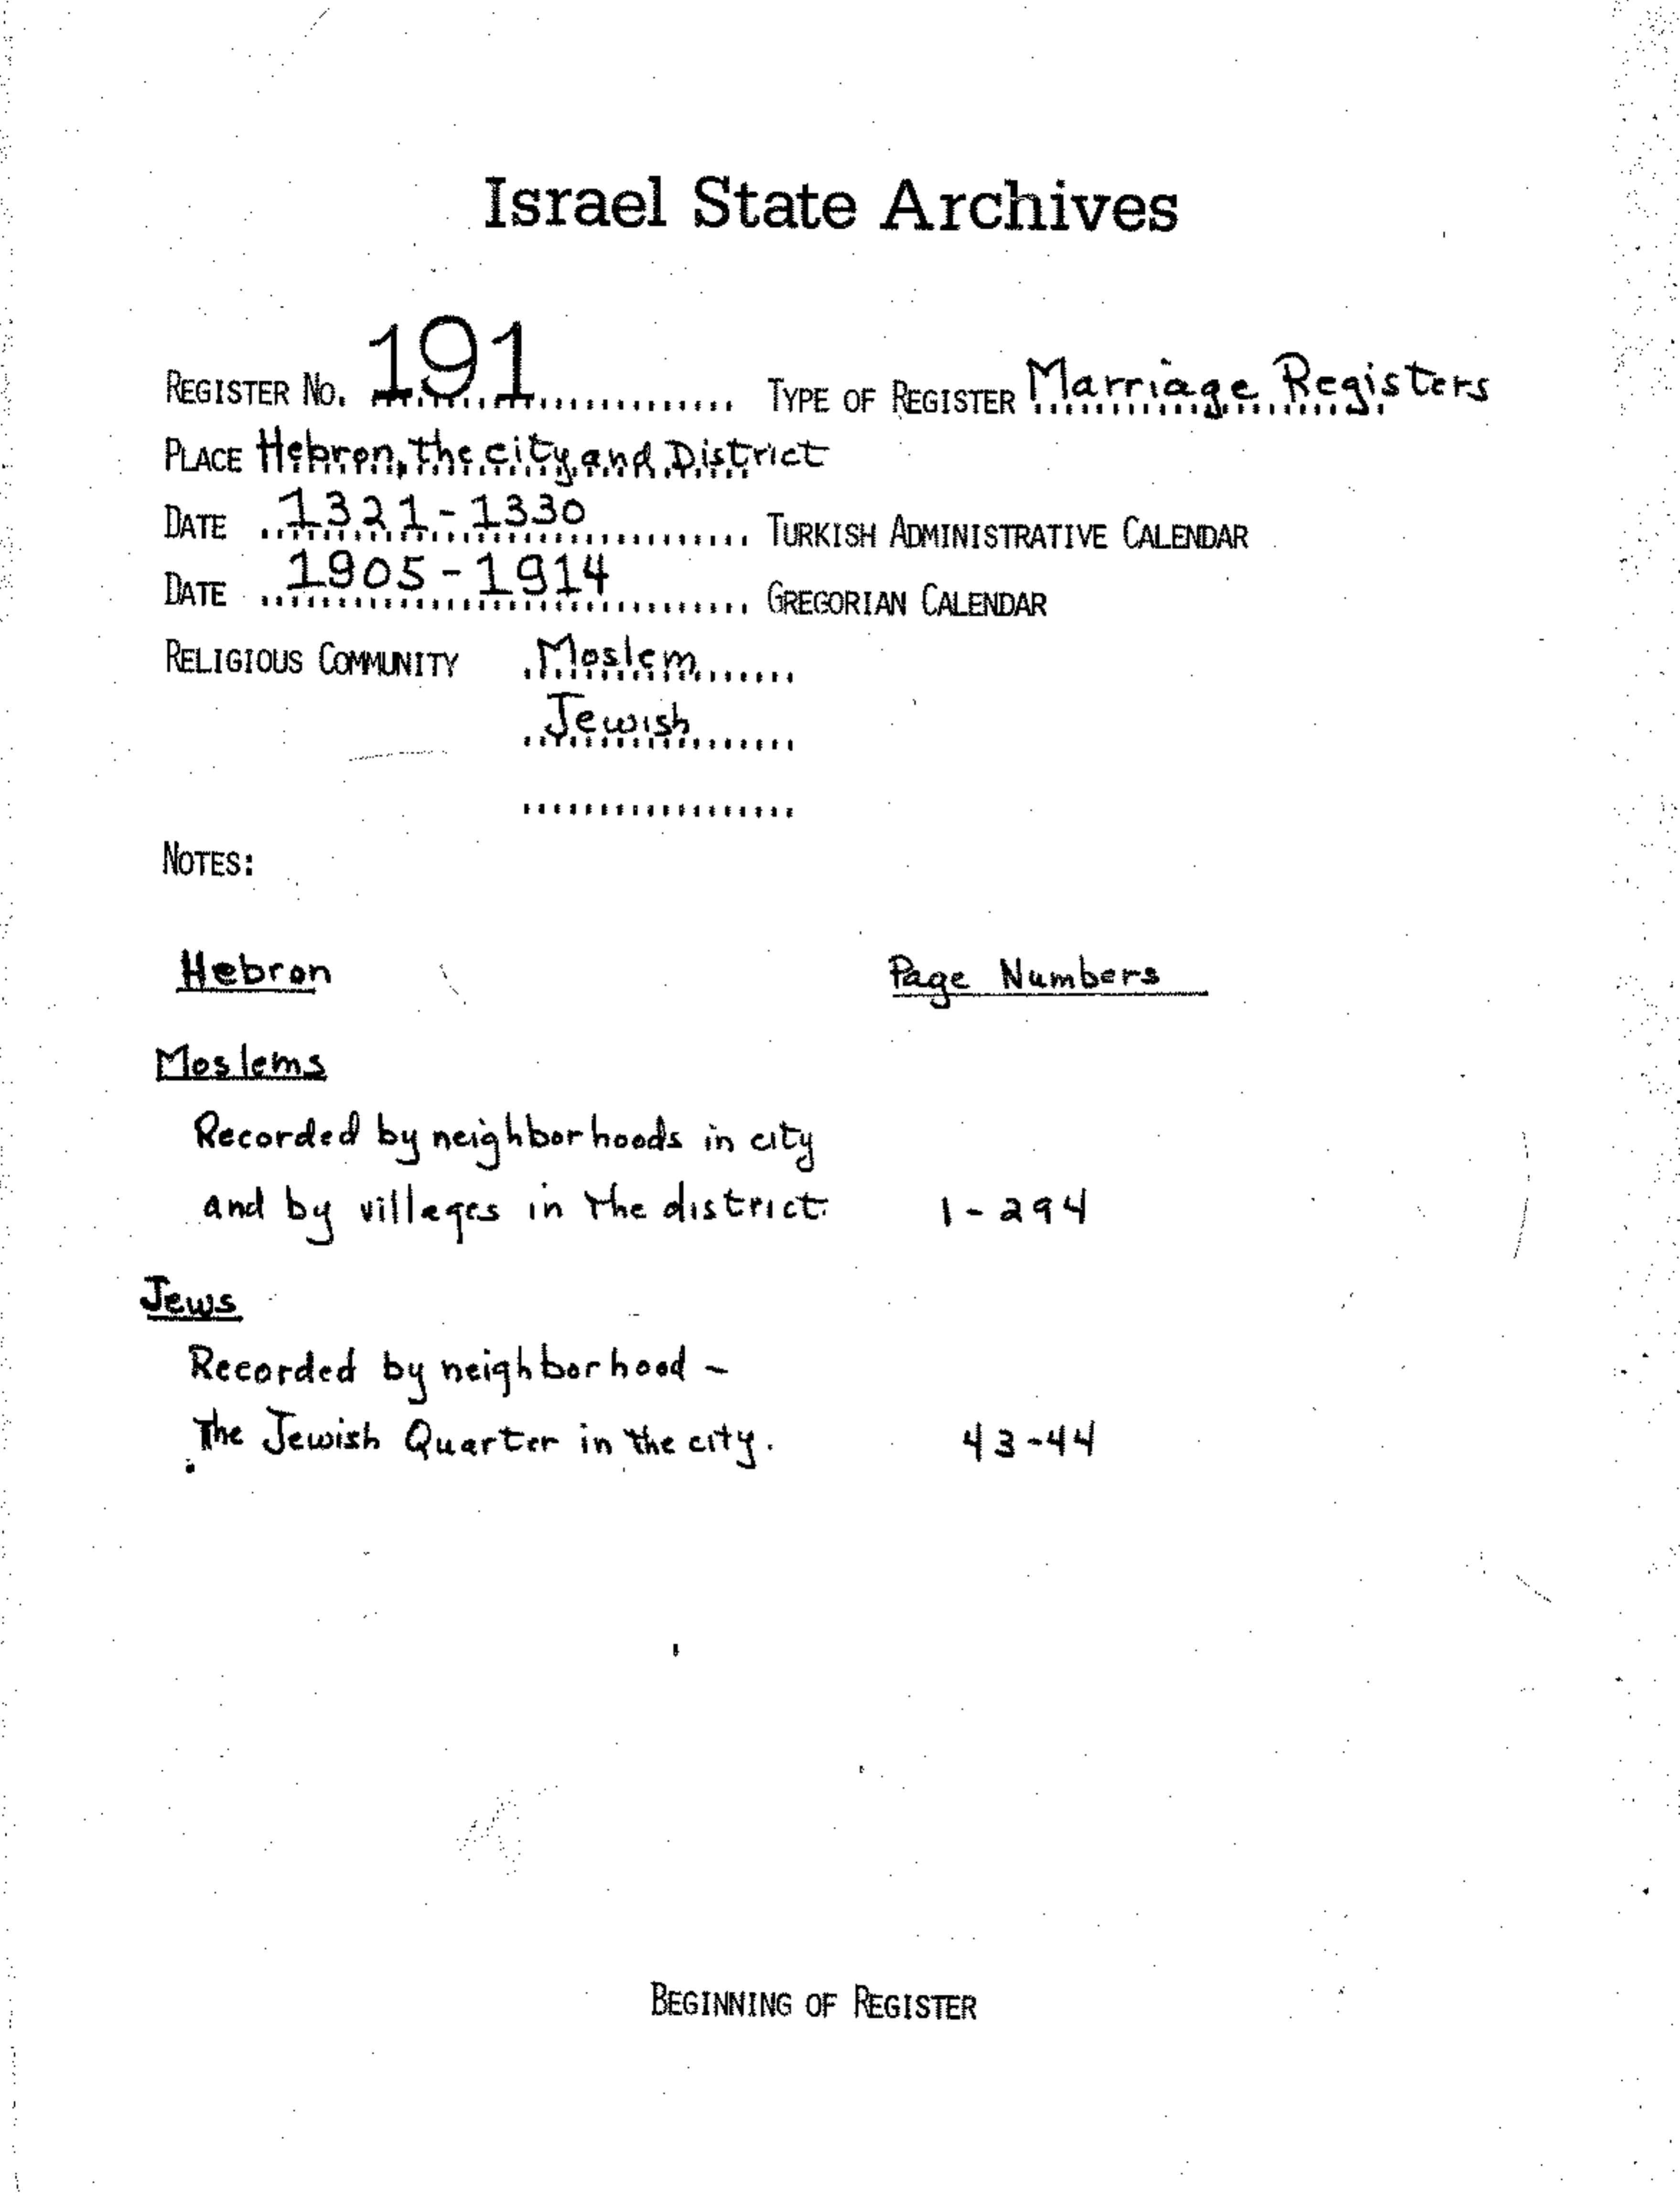 Israel State Archives
REGISTER NO. 191 TYPE OF REGISTER Marriage Registers
PLACE Hebron, the city and District
DATE 1321-1330 TURKISH ADMINISTRATIVE CALENDAR
DATE 1905-1914 GREGORIAN CALENDAR
RELIGIOUS COMMUNITY Moslem
Jewish
NOTES:
Hebron Page Numbers
Moslems
Recorded by neighborhoods in city
and by villeges in the district. 1-294
Jews
Recorded by neighborhood -
The Jewish Quarter in the city. 43-44
BEGINNING OF REGISTER